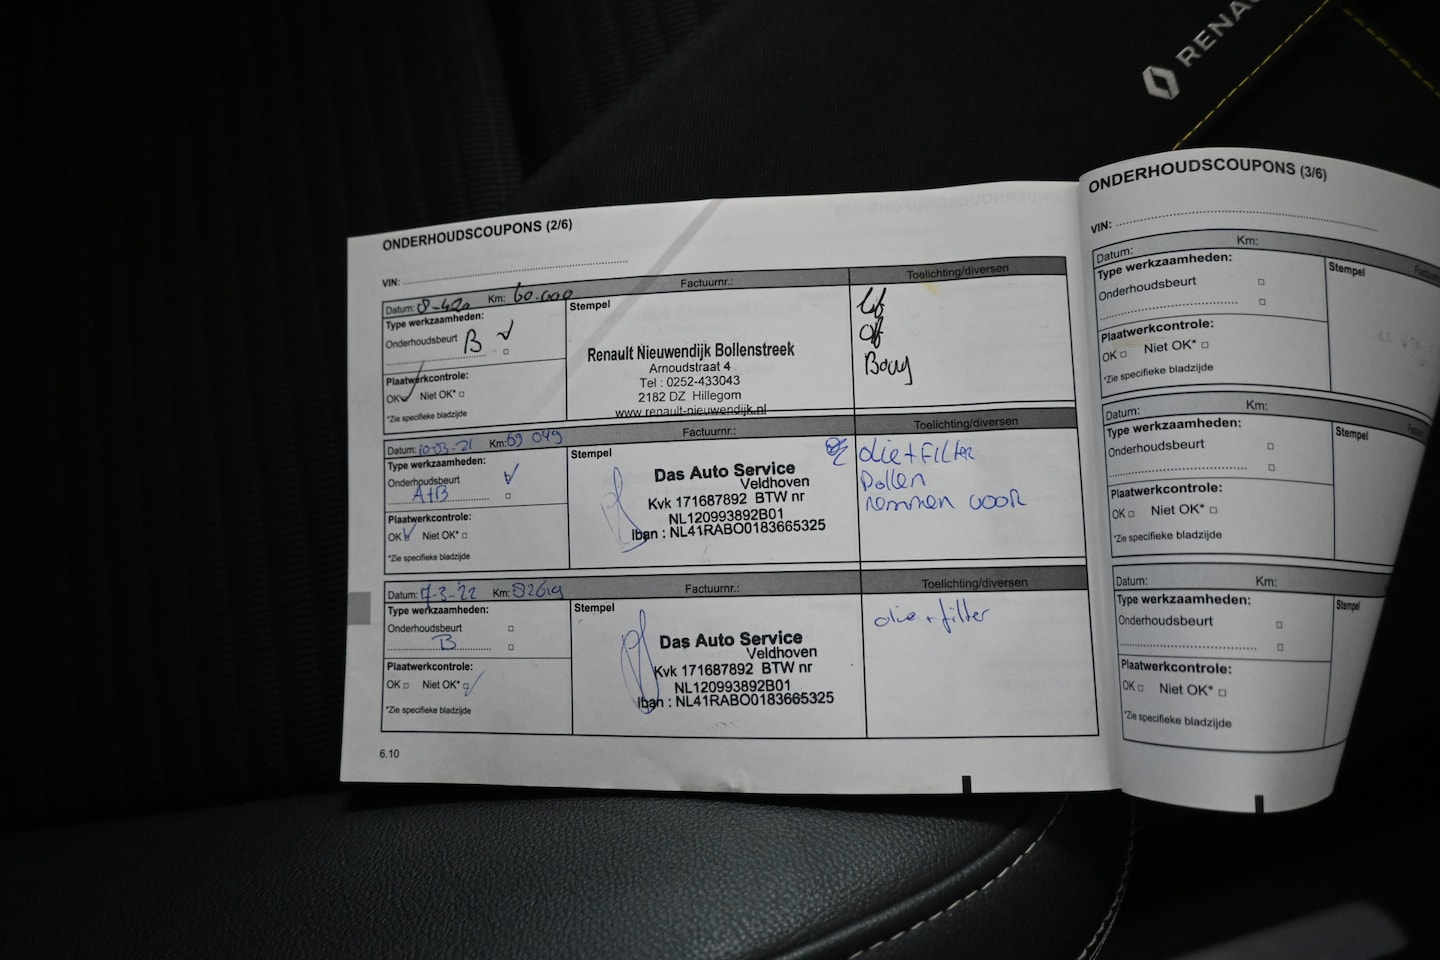 RENAU
ONDERHOUDSCOUPONS (2/6)
VIN:
Datum: 8-420 Km: 60.000 Factuurnr.: Toelichting/diversen
Type werkzaamheden:
Onderhoudsbeurt B
Plaatwerkcontrole:
OK Niet OK*
*Zie specifieke bladzijde
Stempel
Renault Nieuwendijk Bollenstreek
Arnoudstraat 4
Tel : 0252-433043
2182 DZ Hillegom
www.renault-nieuwendijk.nl
Datum: 10-03-21 Km: 69 049 Factuurnr.: Toelichting/diversen
Type werkzaamheden:
Onderhoudsbeurt
A+B
Plaatwerkcontrole:
OK Niet OK*
*Zie specifieke bladzijde
Stempel
Das Auto Service
Veldhoven
Kvk 171687892 BTW nr
NL120993892B01
Iban : NL41RABO0183665325
olie + FILTER
Pollen
remmen voor
Datum: 7-3-'22 Km: 82619 Factuurnr.: Toelichting/diversen
Type werkzaamheden:
Onderhoudsbeurt
B
Plaatwerkcontrole:
OK Niet OK*
*Zie specifieke bladzijde
Stempel
Das Auto Service
Veldhoven
Kvk 171687892 BTW nr
NL120993892B01
Iban : NL41RABO0183665325
olie + filter
6.10
ONDERHOUDSCOUPONS (3/6)
VIN:
Datum: Km:
Type werkzaamheden:
Onderhoudsbeurt
Plaatwerkcontrole:
OK Niet OK*
*Zie specifieke bladzijde
Stempel
Datum: Km:
Type werkzaamheden:
Onderhoudsbeurt
Plaatwerkcontrole:
OK Niet OK*
*Zie specifieke bladzijde
Stempel
Datum: Km:
Type werkzaamheden:
Onderhoudsbeurt
Plaatwerkcontrole:
OK Niet OK*
*Zie specifieke bladzijde
Stempel